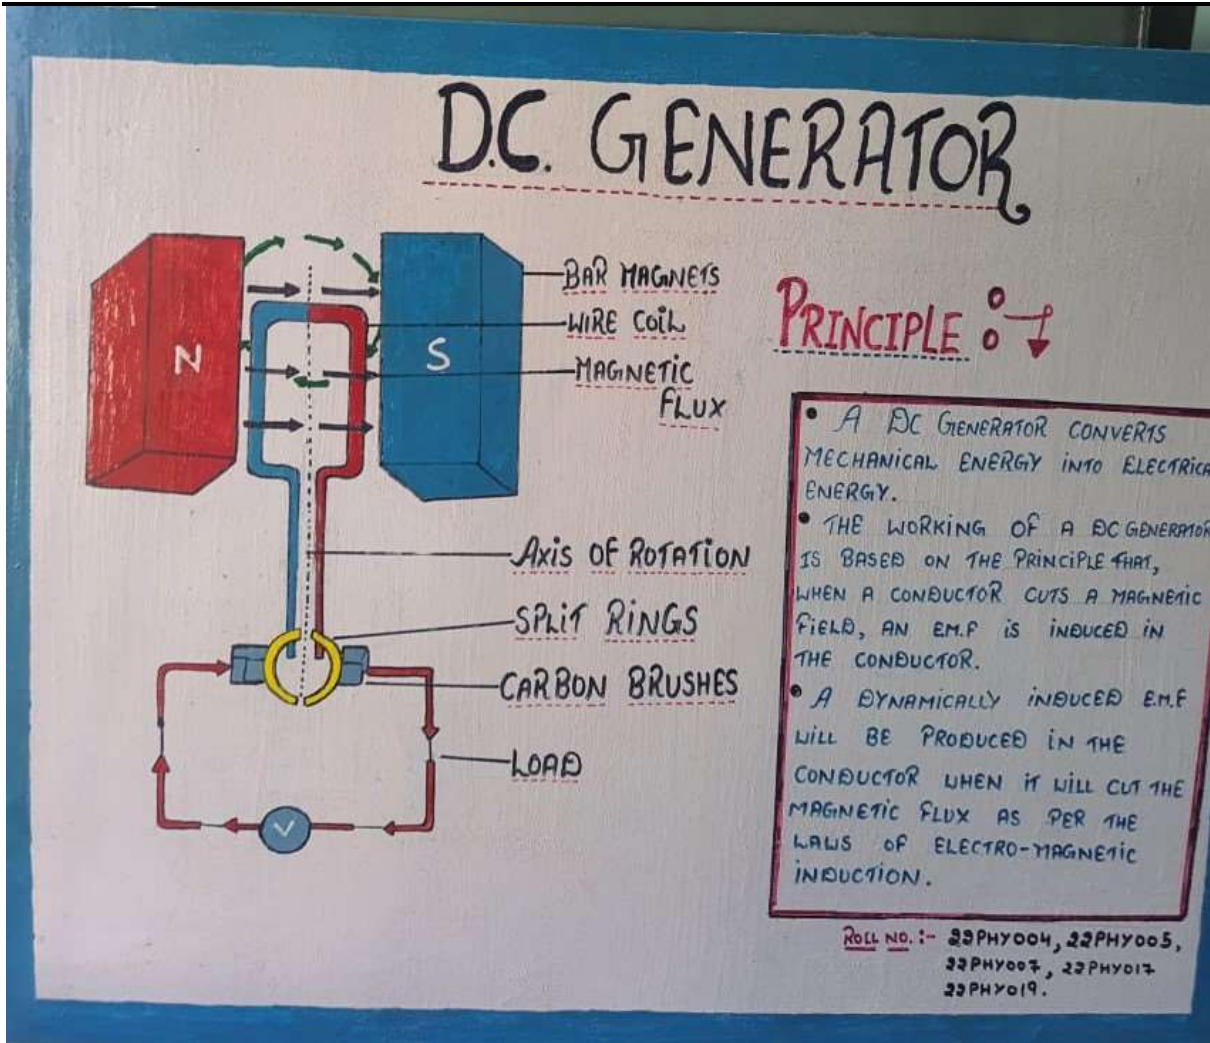 D.C. GENERATOR
BAR MAGNETS
WIRE COIL
MAGNETIC
FLUX
N
S
AXIS OF ROTATION
SPLIT RINGS
CARBON BRUSHES
LOAD
V
PRINCIPLE :→
• A DC GENERATOR CONVERTS
MECHANICAL ENERGY INTO ELECTRICA
ENERGY.
• THE WORKING OF A DC GENERATOR
IS BASED ON THE PRINCIPLE THAT,
WHEN A CONDUCTOR CUTS A MAGNETIC
FIELD, AN E.M.F IS INDUCED IN
THE CONDUCTOR.
• A DYNAMICALLY INDUCED E.M.F
WILL BE PRODUCED IN THE
CONDUCTOR WHEN IT WILL CUT THE
MAGNETIC FLUX AS PER THE
LAWS OF ELECTRO-MAGNETIC
INDUCTION.
ROLL NO. :- 22PHY004, 22PHY005,
22PHY007, 22PHY017
22PHY019.